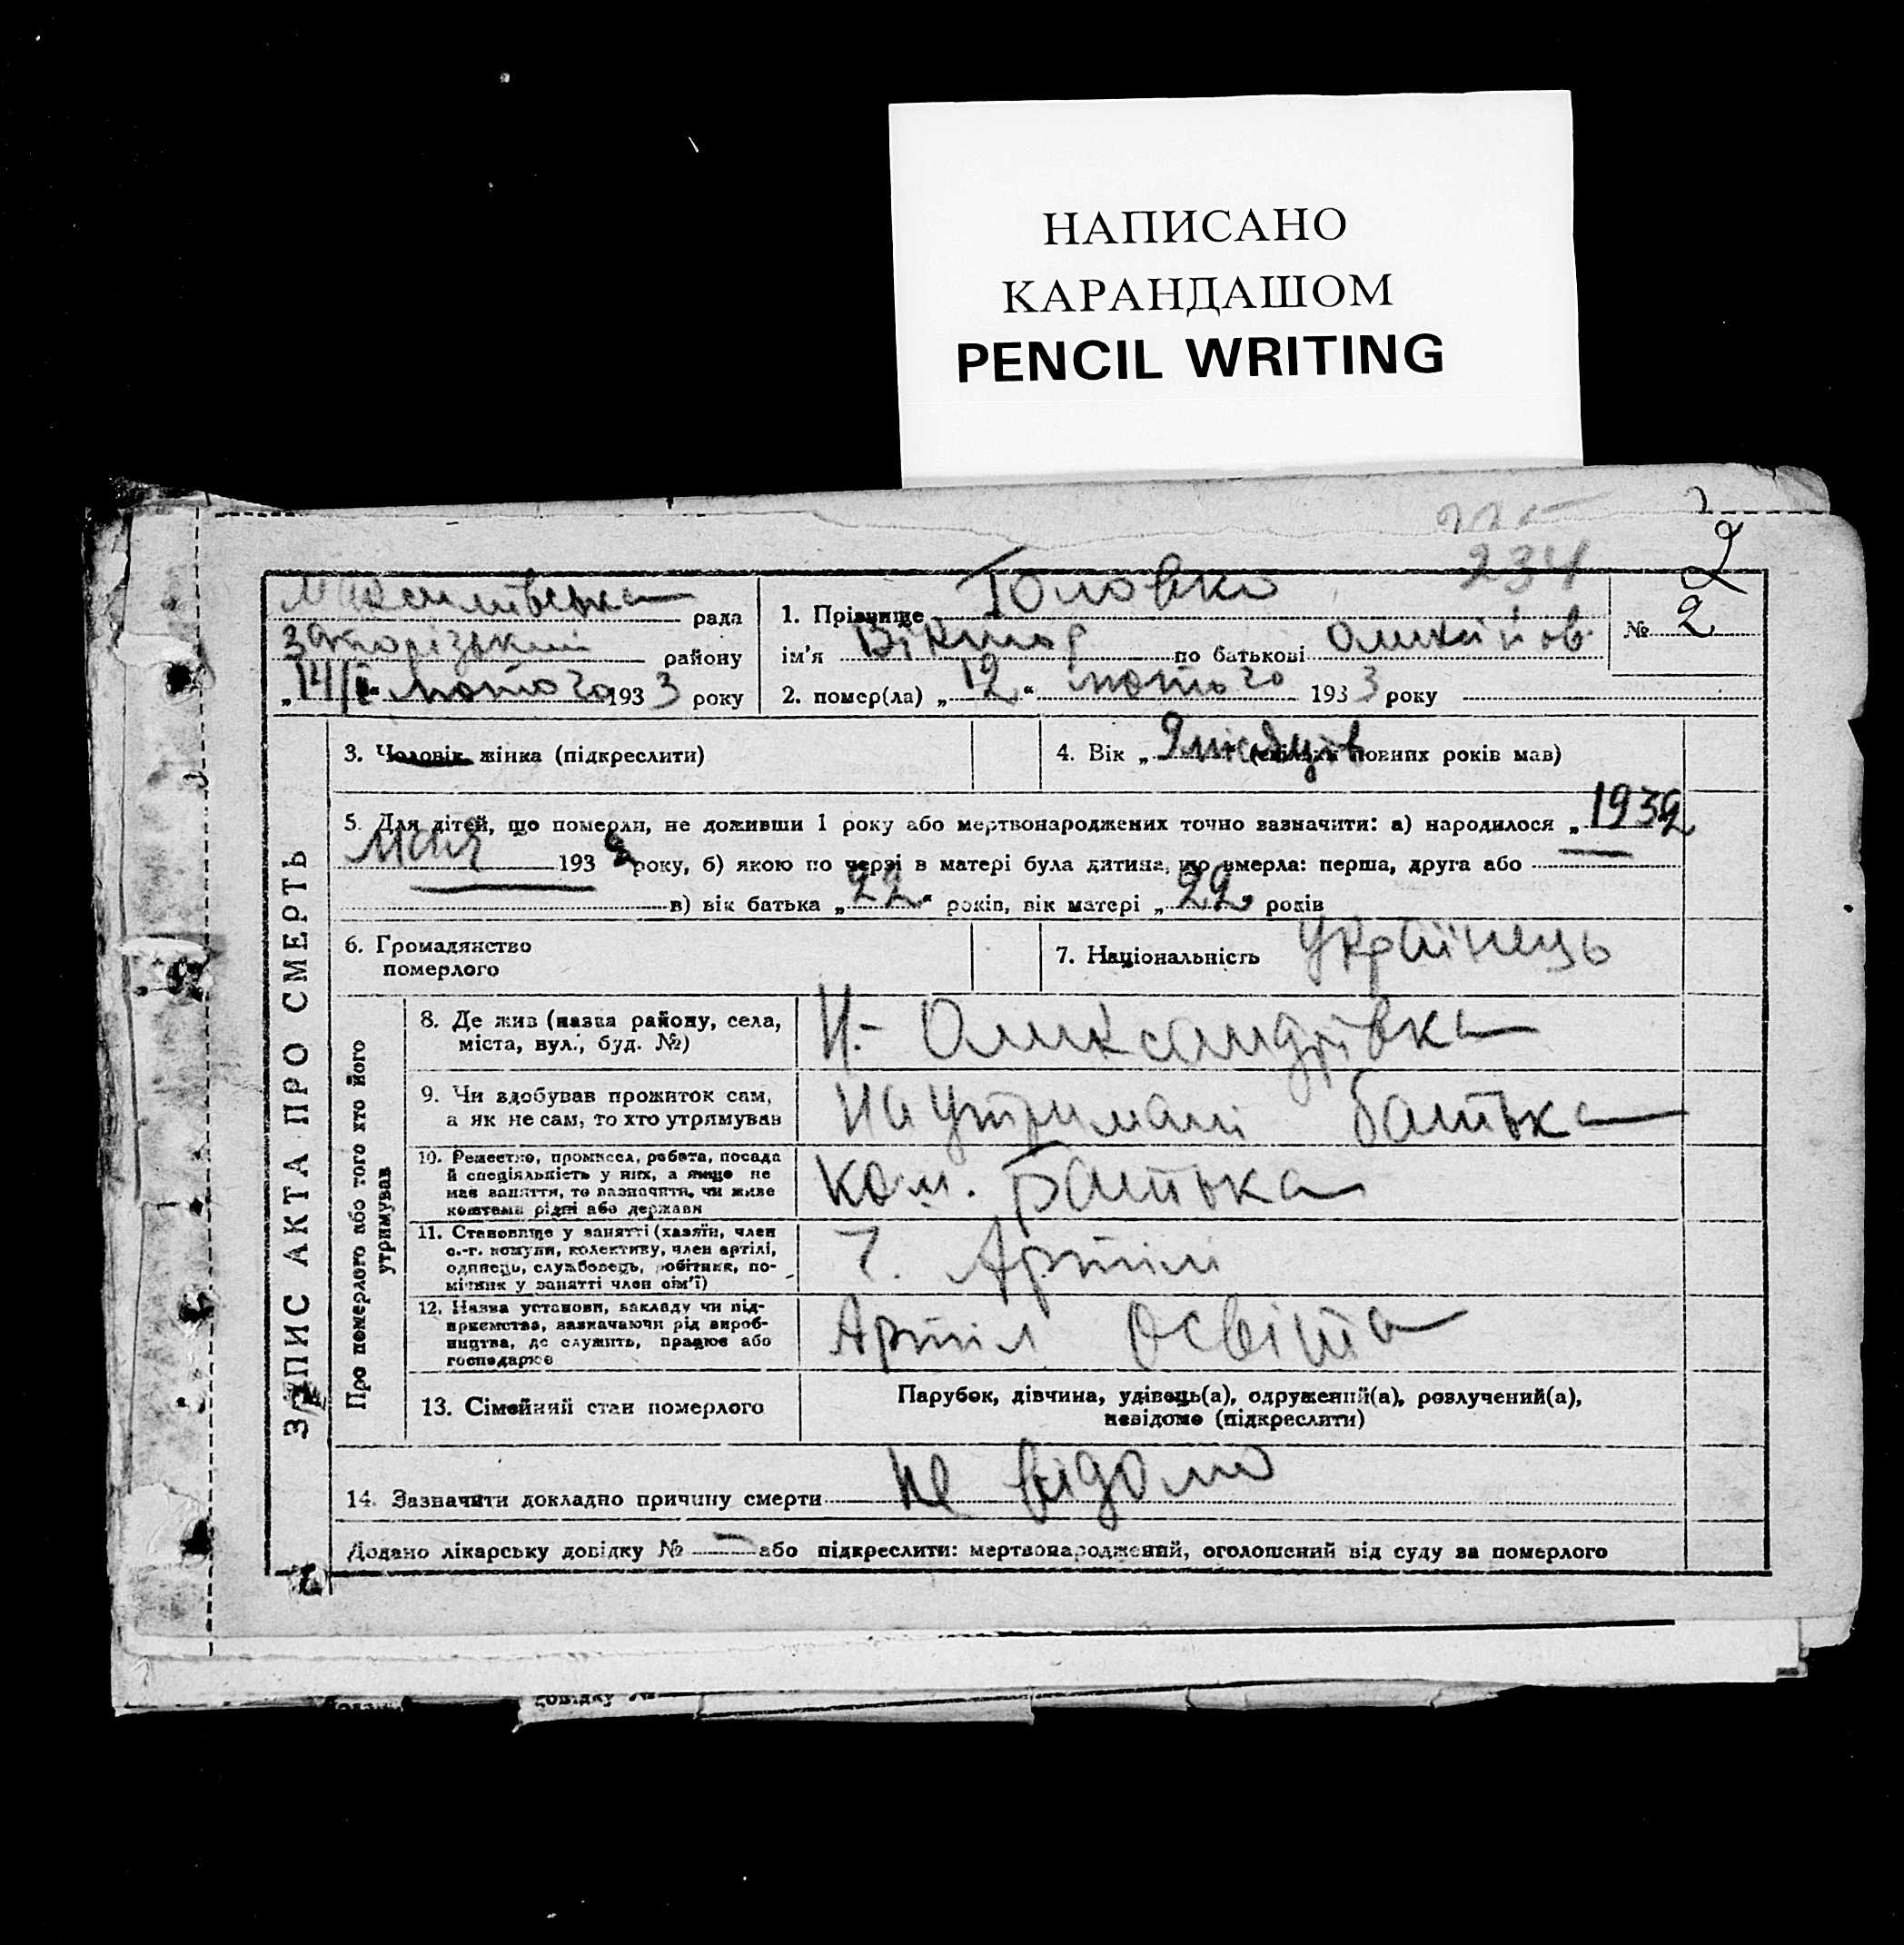 НАПИСАНО
КАРАНДАШОМ
PENCIL WRITING
234
2
рада
1. Прізвище Головко
№ 2
району
ім'я Віктор по батькові
„14/ лютого 1933 року
2. помер(ла) „12“ лютого 1933 року
ЗАПИС АКТА ПРО СМЕРТЬ
3. Чоловік жінка (підкреслити)
4. Вік „ 9 місяців (скільки повних років мав)
5. Для дітей, що померли, не доживши 1 року або мертвонароджених точно зазначити: а) народилося „ 1932
мая 1932 року, б) якою по черзі в матері була дитина, що вмерла: перша, друга або
в) вік батька „22“ років, вік матері „22“ років
6. Громадянство
померлого
7. Національність Українець
Про померлого або того хто його
утримував
8. Де жив (назва району, села,
міста, вул., буд. №)
Н.- Олександрівка
9. Чи здобував прожиток сам,
а як не сам, то хто утримував
На утримані батька
10. Ремество, промисел, робота, посада
й спеціяльність у них, а якщо не
мав заняття, то зазначити, чи живе
коштами рідні або держави
ком. Батька
11. Становище у занятті (хазяїн, член
с.-г. комуни, колективу, член артілі,
одинець, службовець, робітник, по-
мічник у занятті член сім'ї)
ч. Артілі
12. Назва установи, закладу чи під-
приємства, зазначаючи рід вироб-
ництва, де служить, працює або
господарює
Артіл Освіта
13. Сімейний стан померлого
Парубок, дівчина, удівець(а), одружений(а), розлучений(а),
невідомо (підкреслити)
14. Зазначити докладно причину смерти не відомо
Додано лікарську довідку № — або підкреслити: мертвонароджений, оголошений від суду за померлого
довідку №